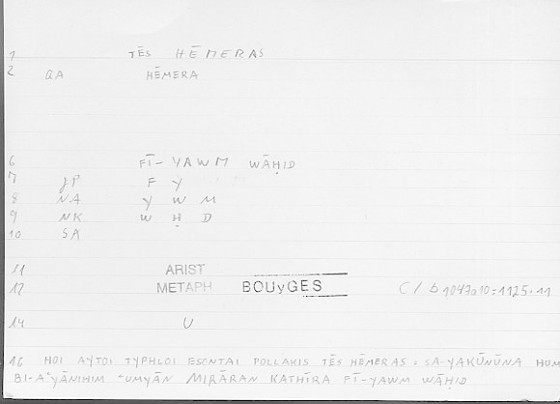 1 TĒS HĒMERAS
2 QA HĒMERA
6 FĪ-YAWM WĀḤID
7 JP F Y
8 NA Y W M
9 NK W Ḥ D
10 SA
11 ARIST
12 METAPH BOUyGES C/b 1047a10=1125.11
14 U
16 HOI AYTOI TYPHLOI ESONTAI POLLAKIS TĒS HĒMERAS = SA-YAKŪNŪNA HUM
BI-AʿYĀNIHIM ʿUMYĀN MIRĀRAN KATHĪRA FĪ-YAWM WĀḤID